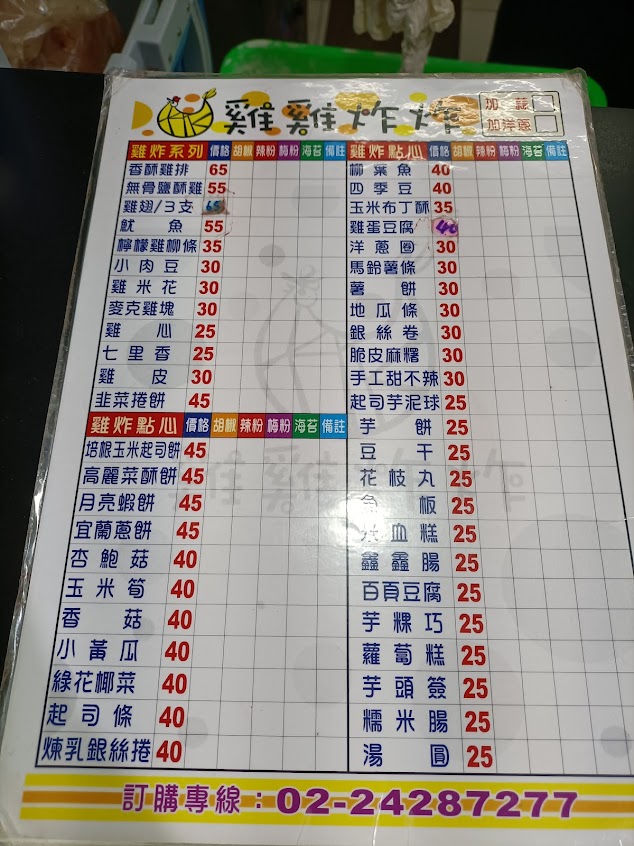 雞雞炸炸
加蒜
加洋蔥
雞炸系列 價格 胡椒 辣粉 梅粉 海苔 備註
香酥雞排 65
無骨鹽酥雞 55
雞翅/3支 65
魷魚 55
檸檬雞柳條 35
小肉豆 30
雞米花 30
麥克雞塊 30
雞心 25
七里香 25
雞皮 30
韭菜捲餅 45
雞炸點心 價格 胡椒 辣粉 梅粉 海苔 備註
培根玉米起司餅 45
高麗菜酥餅 45
月亮蝦餅 45
宜蘭蔥餅 45
杏鮑菇 40
玉米筍 40
香菇 40
小黃瓜 40
綠花椰菜 40
起司條 40
煉乳銀絲捲 40
雞炸點心 價格 胡椒 辣粉 梅粉 海苔 備註
柳葉魚 40
四季豆 40
玉米布丁酥 35
雞蛋豆腐 40
洋蔥圈 30
馬鈴薯條 30
薯餅 30
地瓜條 30
銀絲卷 30
脆皮麻糬 30
手工甜不辣 30
起司芋泥球 25
芋餅 25
豆干 25
花枝丸 25
板 25
血糕 25
鑫鑫腸 25
百頁豆腐 25
芋粿巧 25
蘿蔔糕 25
芋頭簽 25
糯米腸 25
湯圓 25
訂購專線：02-24287277